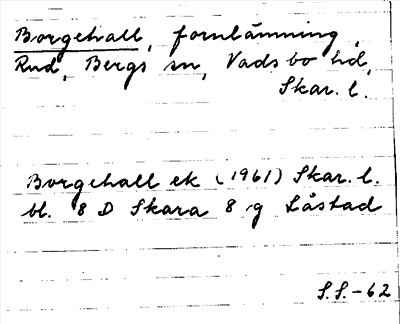 Borgehall, fornlämning,
Rud, Bergs sn, Vadsbo hd,
Skar. l.
Borgehall ek (1961) Skar. l.
bl. 8 D Skara 8 g Låstad
S.S.-62